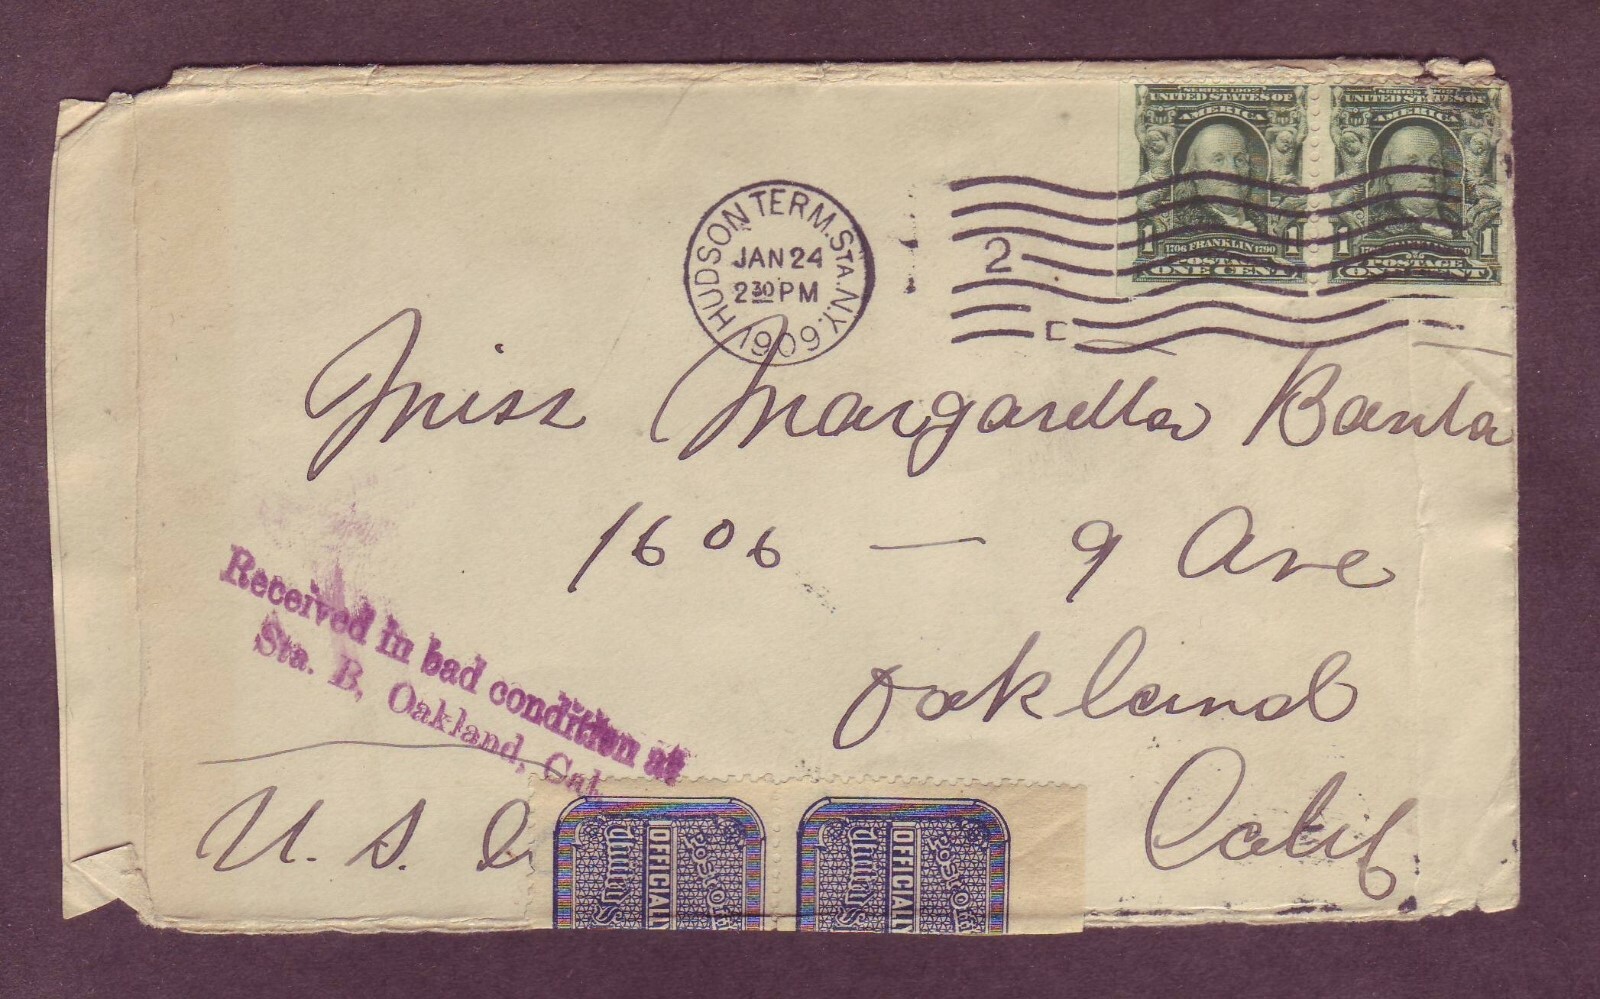 SERIES 1902 SERIES 1902
UNITED STATES OF UNITED STATES OF
AMERICA AMERICA
1 1 1 1
1706 FRANKLIN 1790
POSTAGE POSTAGE
ONE CENT ONE CENT
HUDSON TERM. STA. N.Y.
JAN 24
2 30 PM
1909
2
C
Miss Margaretta Banta
1606 — 9 Ave
Oakland
Calif
Received in bad condition at
Sta. B, Oakland, Cal.
U. S.
POST OFFICIALLY
POST OFFICIALLY